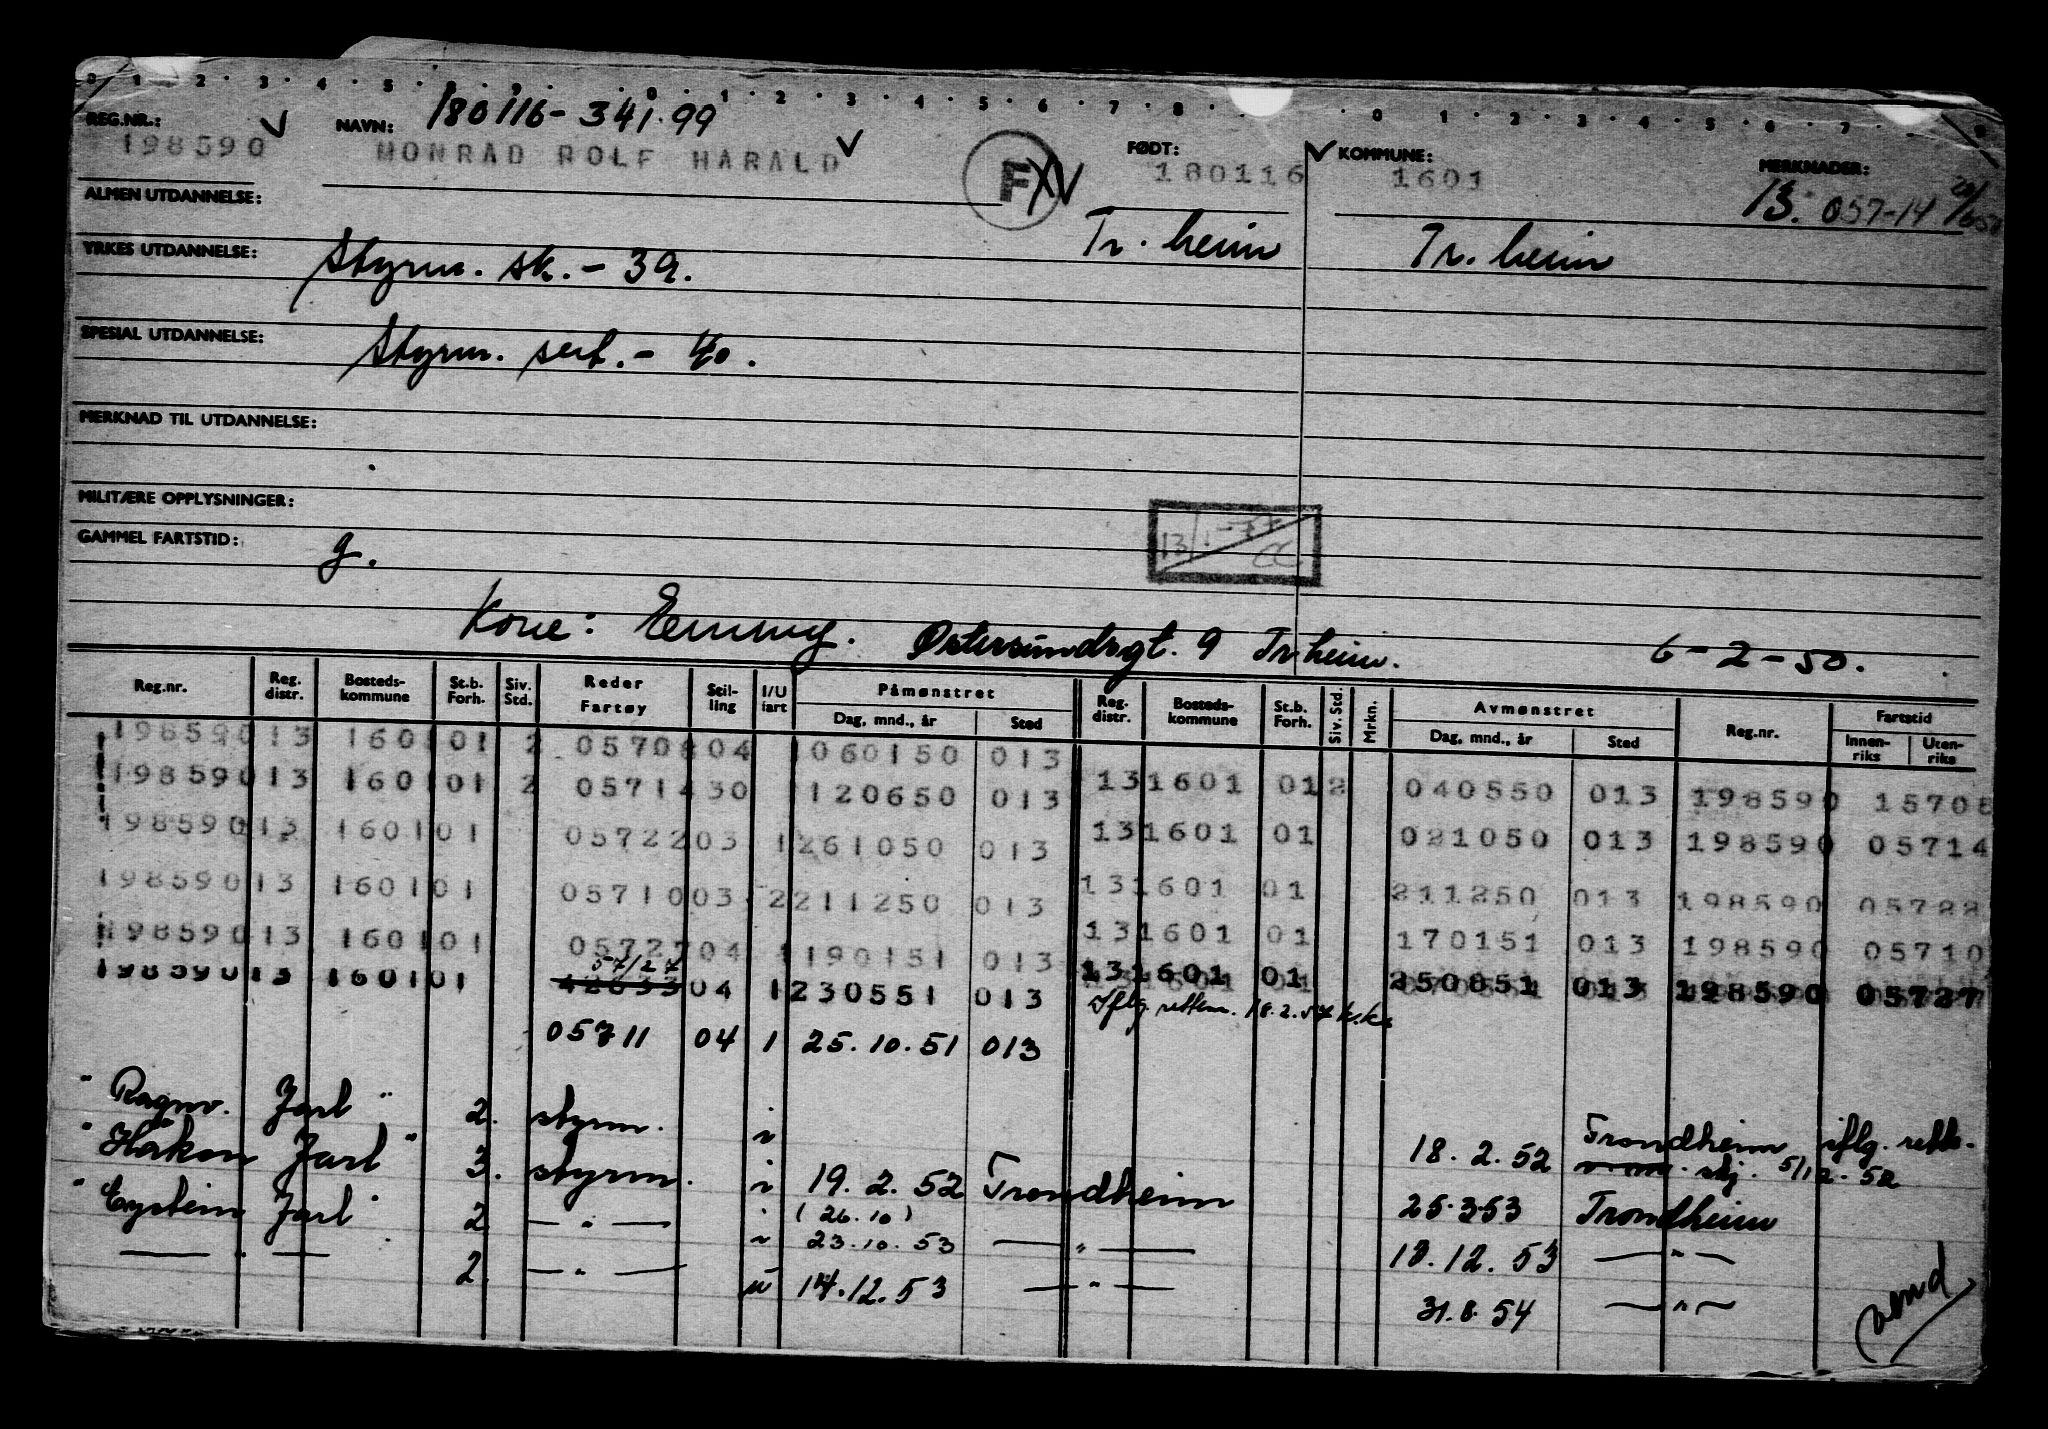 0 · 1 · 2 · 3 · 4 · 5 · 0 · 1 · 2 · 3 · 4 · 5 · 6 · 7 · 8 · 0 · 1 · 2 · 3 · 4 · 5 · 6 · 7 · 9
REG.NR.: NAVN: 180116-341.99 FØDT: KOMMUNE: MERKNADER:
198590 MONRAD ROLF HARALD F 180116 1601 13. 057-14
ALMEN UTDANNELSE: Tr.heim Tr.heim
YRKES UTDANNELSE: Styrm. sk. - 39.
SPESIAL UTDANNELSE: Styrm. sert. - 40.
MERKNAD TIL UTDANNELSE:
MILITÆRE OPPLYSNINGER:
GAMMEL FARTSTID: g.
Kone: Emmy. Østersundsgt. 9 Tr.heim. 6-2-50.
Reg.nr. Reg. distr. Bosteds-kommune St.b. Forh. Siv. Std. Reder Fartøy Stil-ling I/U fart Påmønstret Dag, mnd., år Sted Reg. distr. Bosteds-kommune St.b. Forh. Siv. Std. Mrkn. Avmønstret Dag, mnd., år Sted Reg.nr. Fartstid Innen-riks Uten-riks
198590 13 1601 01 2 05708 04 1 060150 013
198590 13 1601 01 2 05714 30 1 120650 013 13 1601 01 2 040550 013 198590 15708
198590 13 1601 01 05722 03 1 261050 013 13 1601 01 021050 013 198590 05714
198590 13 1601 01 05710 03 2 211250 013 13 1601 01 211250 013 198590 05722
198590 13 1601 01 05727 04 1 190151 013 13 1601 01 170151 013 198590 05710
57/27
198590 13 1601 01 42633 04 1 230551 013 13 1601 01 250851 013 198590 05727
Iflg. rettem. 18.2.57 k.k.
05711 04 1 25.10.51 013
"Ragnv. Jarl" 2. styrm. i 18.2.52 Trondheim iflg. rettn.
skj. 5/12.52
"Håkon Jarl" 3. styrm. i 19.2.52 Trondheim 25.3.53 Trondheim
(26.10)
"Eystein Jarl" 2 — " — i 23.10.53 — " — 13.12.53 — " —
— " — 2. — " — u 14.12.53 — " — 31.8.54 — " —